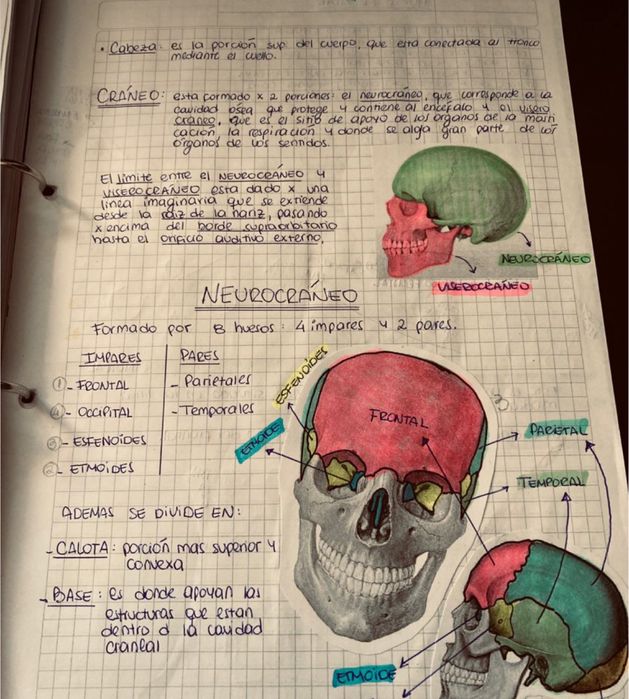 • Cabeza: es la porción sup. del cuerpo, que esta conectada al tronco
mediante el cuello.
CRÁNEO: esta formado x 2 porciones: el neurocráneo, que corresponde a la
cavidad ósea que protege y contiene al encéfalo y el viscero
cráneo, que es el sitio de apoyo de los órganos de la masti
cación, la respiración y donde se aloja gran parte de los
órganos de los sentidos.
El límite entre el NEUROCRÁNEO y
VISCEROCRÁNEO esta dado x una
línea imaginaria que se extiende
desde la raíz de la nariz, pasando
x encima del borde supraorbitario
hasta el orificio auditivo externo.
NEUROCRÁNEO
VISEROCRÁNEO
NEUROCRÁNEO
Formado por 8 huesos: 4 impares y 2 pares.
IMPARES
① - FRONTAL
④ - OCCIPITAL
③ - ESFENOIDES
② - ETMOIDES
PARES
- Parietales
- Temporales
ESFENOIDES
ETMOIDE
FRONTAL
PARIETAL
TEMPORAL
ADEMAS SE DIVIDE EN:
- CALOTA: porción mas superior y
convexa
- BASE: es donde apoyan las
estructuras que estan
dentro d la cavidad
craneal
ETMOIDE